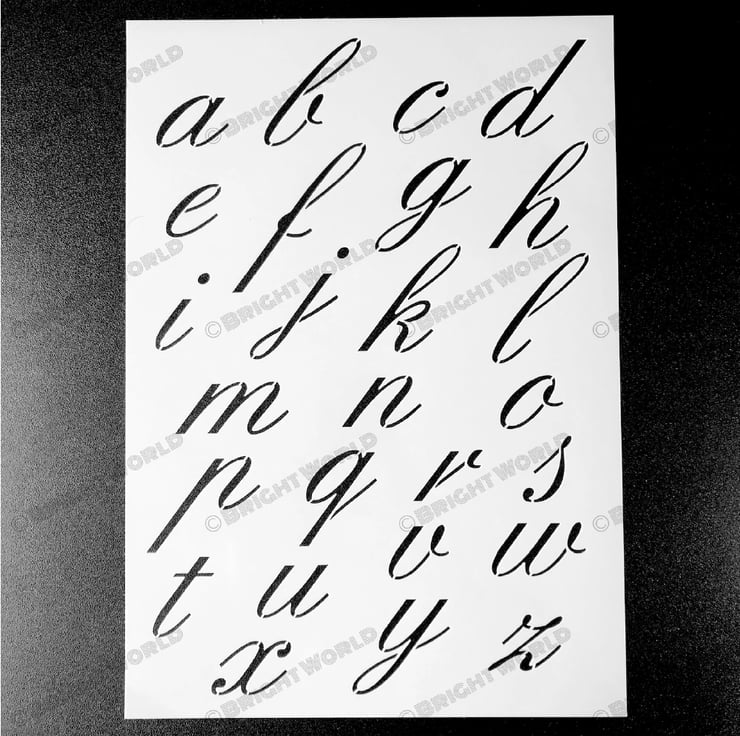 a b c d
e f g h
i j k l
m n o
p q r s
t u v w
x y z
©BRIGHT WORLD